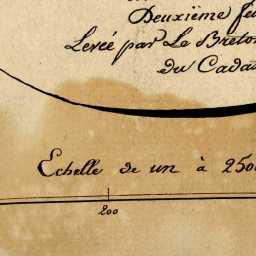 Deuxième
Levée par Le Breton
du Cadas
Echelle de un à 2500
200